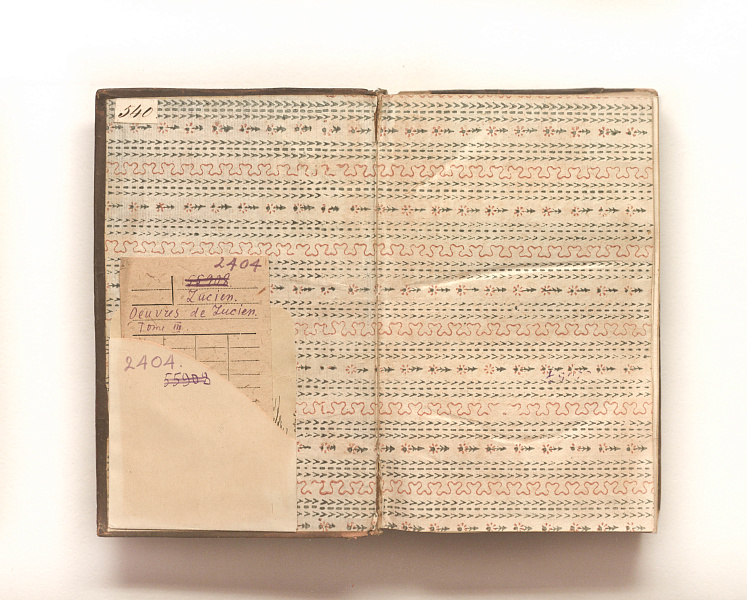 540
2404
55908
Lucien.
Oeuvres de Lucien.
Tome III.
2404.
55908